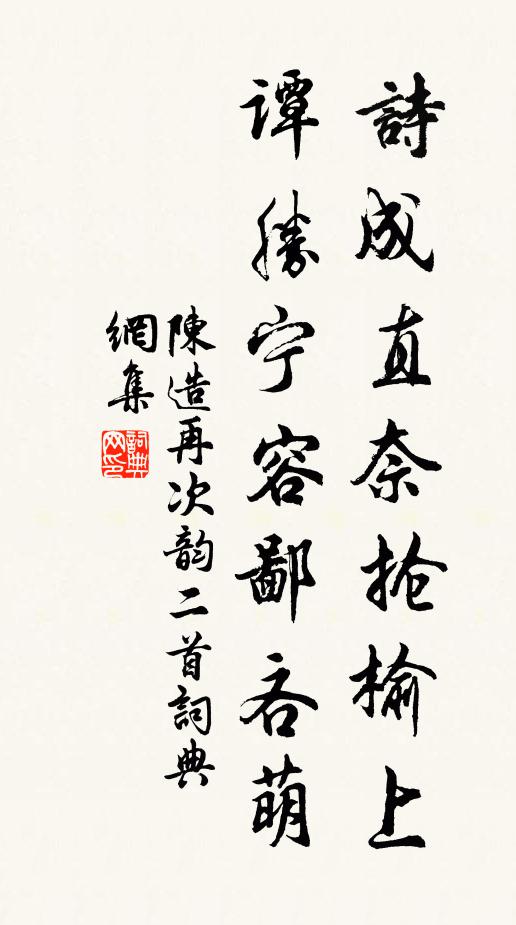 詩成直奈抢榆上
谭勝宁容鄙吝萌
陳造再次韵二首詞典
網集
詞典
网印